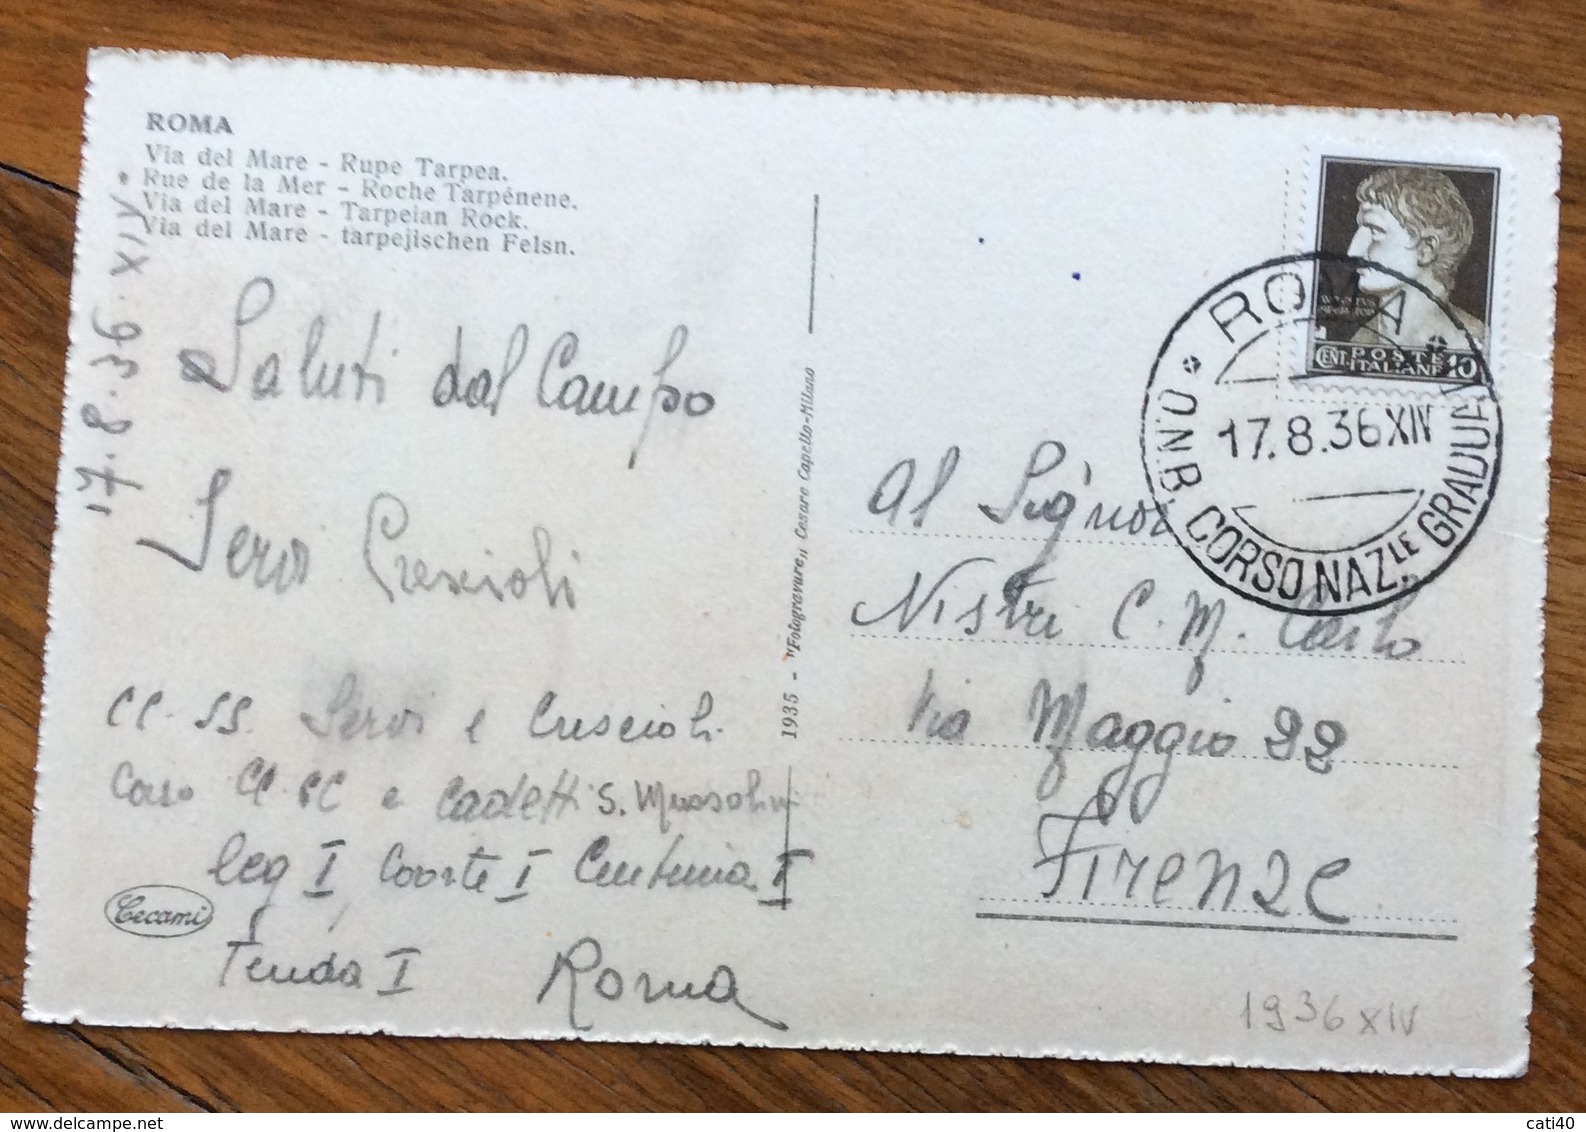 ROMA
Via del Mare - Rupe Tarpea.
Rue de la Mer - Roche Tarpénene.
Via del Mare - Tarpeian Rock.
Via del Mare - tarpejischen Felsn.
17.8.36.XIV.
Saluti dal Campo
Servi Crescioli
CC. SS. Servi e Crescioli
CC. CC e Cadetti S. Mussolini
leg I, Coorte I Centuria I
Tenda I Roma
Cecami
1935 - "Fotogravure" Cesare Capello-Milano
CENT. POSTE ITALIANE 10
ROMA
17.8.36XIV
O.N.B. CORSO NAZLE GRADUATI
Al Signor
Nistri C. M. Carlo
Via Maggio 22
Firenze
1936 XIV
www.delcampe.net
cati40